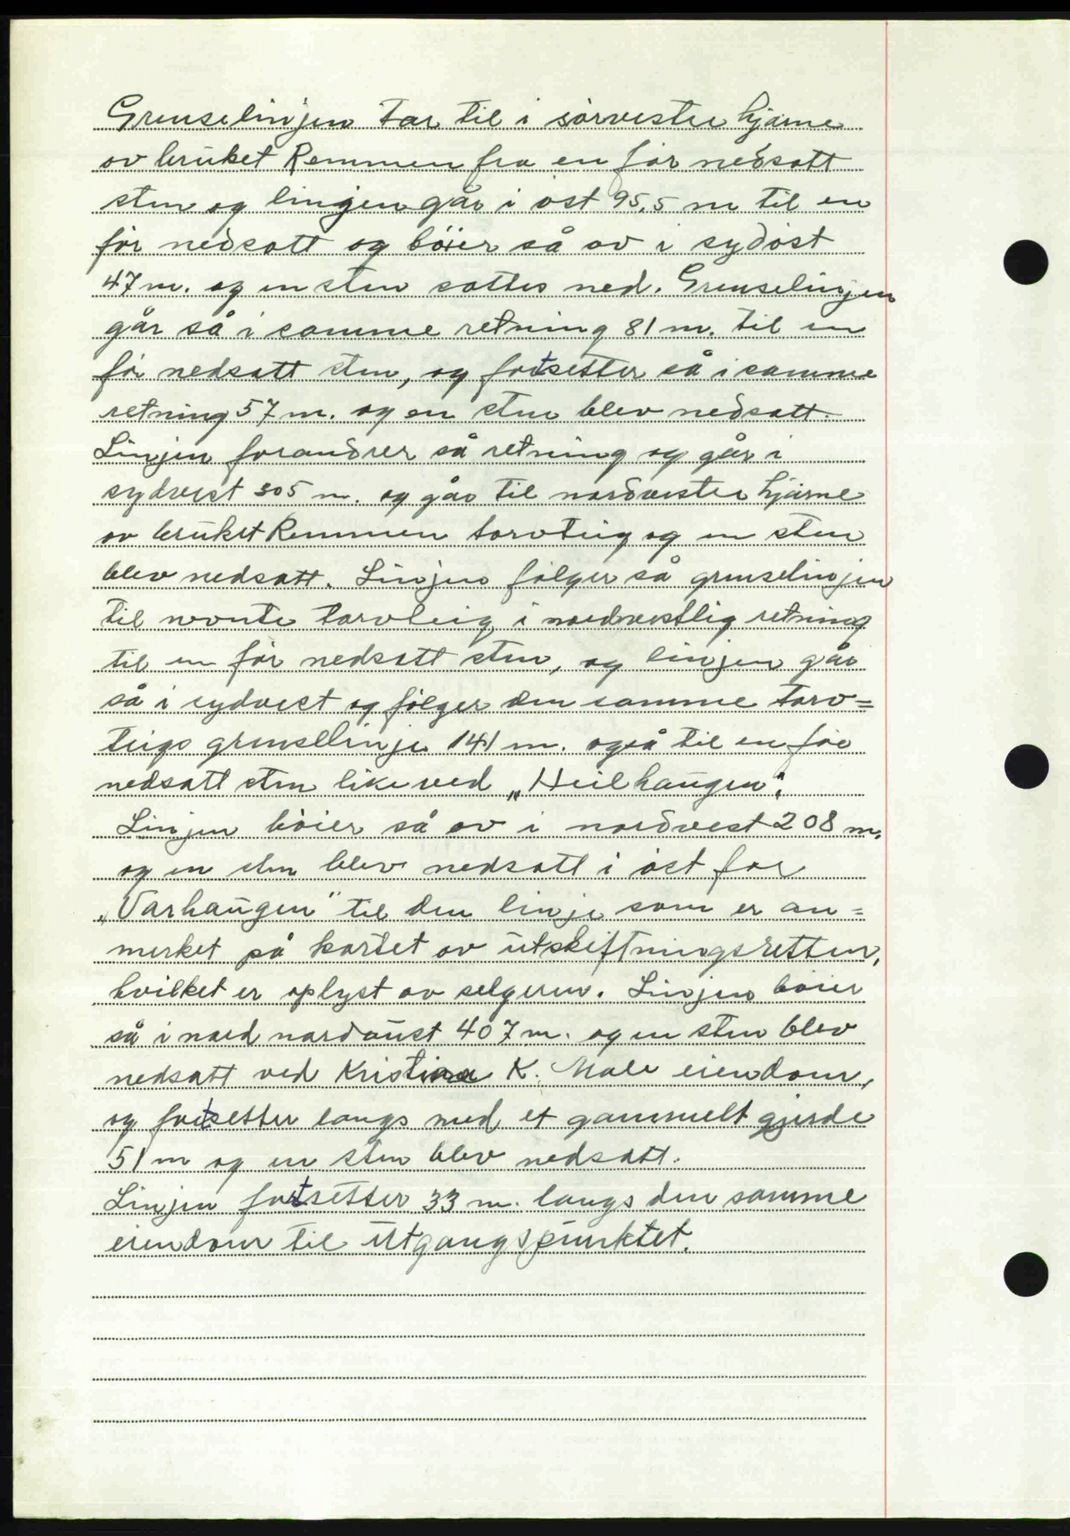 Grenselinjen tar til i sørvestre hjørne
av bruket Remmen fra en før nedsatt
sten og linjen går i øst 95,5 m til en
før nedsatt og bøier så av i sydøst
47 m. og en sten sattes ned. Grenselinjen
går så i samme retning 81 m. til en
før nedsatt sten, og fortsetter så i samme
retning 57 m. og en sten blev nedsatt.
Linjen forandrer så retning og går i
sydvest 305 m. og går til nordvestre hjørne
av bruket Remmen torvteig og en sten
blev nedsatt. Linjen følger så grenselinjen
til nevnte torvteig i nordvestlig retning
til en før nedsatt sten, og linjen går
så i sydvest og følger den samme torv=
teigs grenselinje 141 m. også til en før
nedsatt sten like ved „Heilhaugen".
Linjen bøier så av i nordvest 208 m.
og en sten blev nedsatt i øst for
„Varhaugen" til den linje som er an=
merket på kartet av utskiftningsretten,
hvilket er oplyst av selgeren. Linjen bøier
så i nord nordaust 407 m. og en sten blev
nedsatt ved Kristina K. Male eiendom,
og fortsetter langs med et gammelt gjerde
51 m og en sten blev nedsatt.
Linjen fortsetter 33 m. langs den samme
eiendom til utgangspunktet.